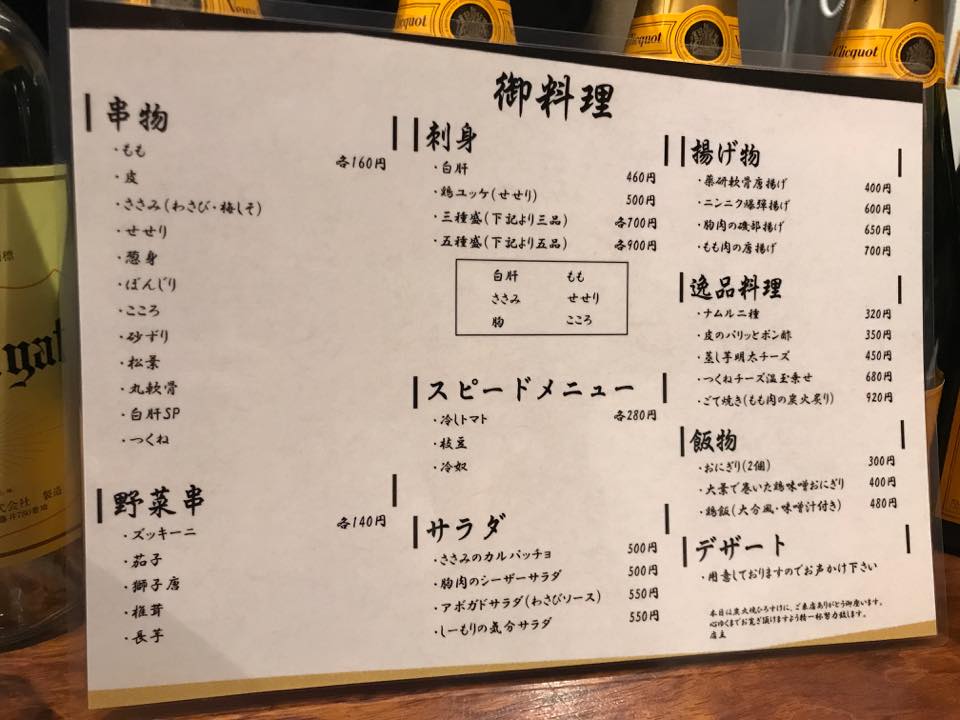 御料理
串物
各160円
・もも
・皮
・ささみ(わさび・梅しそ)
・せせり
・葱身
・ぼんじり
・こころ
・砂ずり
・松葉
・丸軟骨
・白肝SP
・つくね
野菜串
各140円
・ズッキーニ
・茄子
・獅子唐
・椎茸
・長芋
刺身
・白肝 460円
・鶏ユッケ(せせり) 500円
・三種盛(下記より三品) 各700円
・五種盛(下記より五品) 各900円
白肝 もも
ささみ せせり
胸 こころ
スピードメニュー
・冷しトマト 各280円
・枝豆
・冷奴
サラダ
・ささみのカルパッチョ 500円
・胸肉のシーザーサラダ 500円
・アボガドサラダ(わさびソース) 550円
・しーもりの気分サラダ 550円
揚げ物
・薬研軟骨唐揚げ 400円
・ニンニク爆弾揚げ 600円
・胸肉の磯部揚げ 650円
・もも肉の唐揚げ 700円
逸品料理
・ナムル二種 320円
・皮のパリッとポン酢 350円
・蒸し芋明太チーズ 450円
・つくねチーズ温玉乗せ 680円
・ごて焼き(もも肉の炭火炙り) 920円
飯物
・おにぎり(2個) 300円
・大葉で巻いた鶏味噌おにぎり 400円
・鶏飯(大分風・味噌汁付き) 480円
デザート
・用意しておりますのでお声かけ下さい
本日は炭火焼ひろすけに、ご来店ありがとう御座います。
心ゆくまでお寛ぎ頂けますよう精一杯努力致します。
店主
Clicquot
Clicquot
製造
株式会社